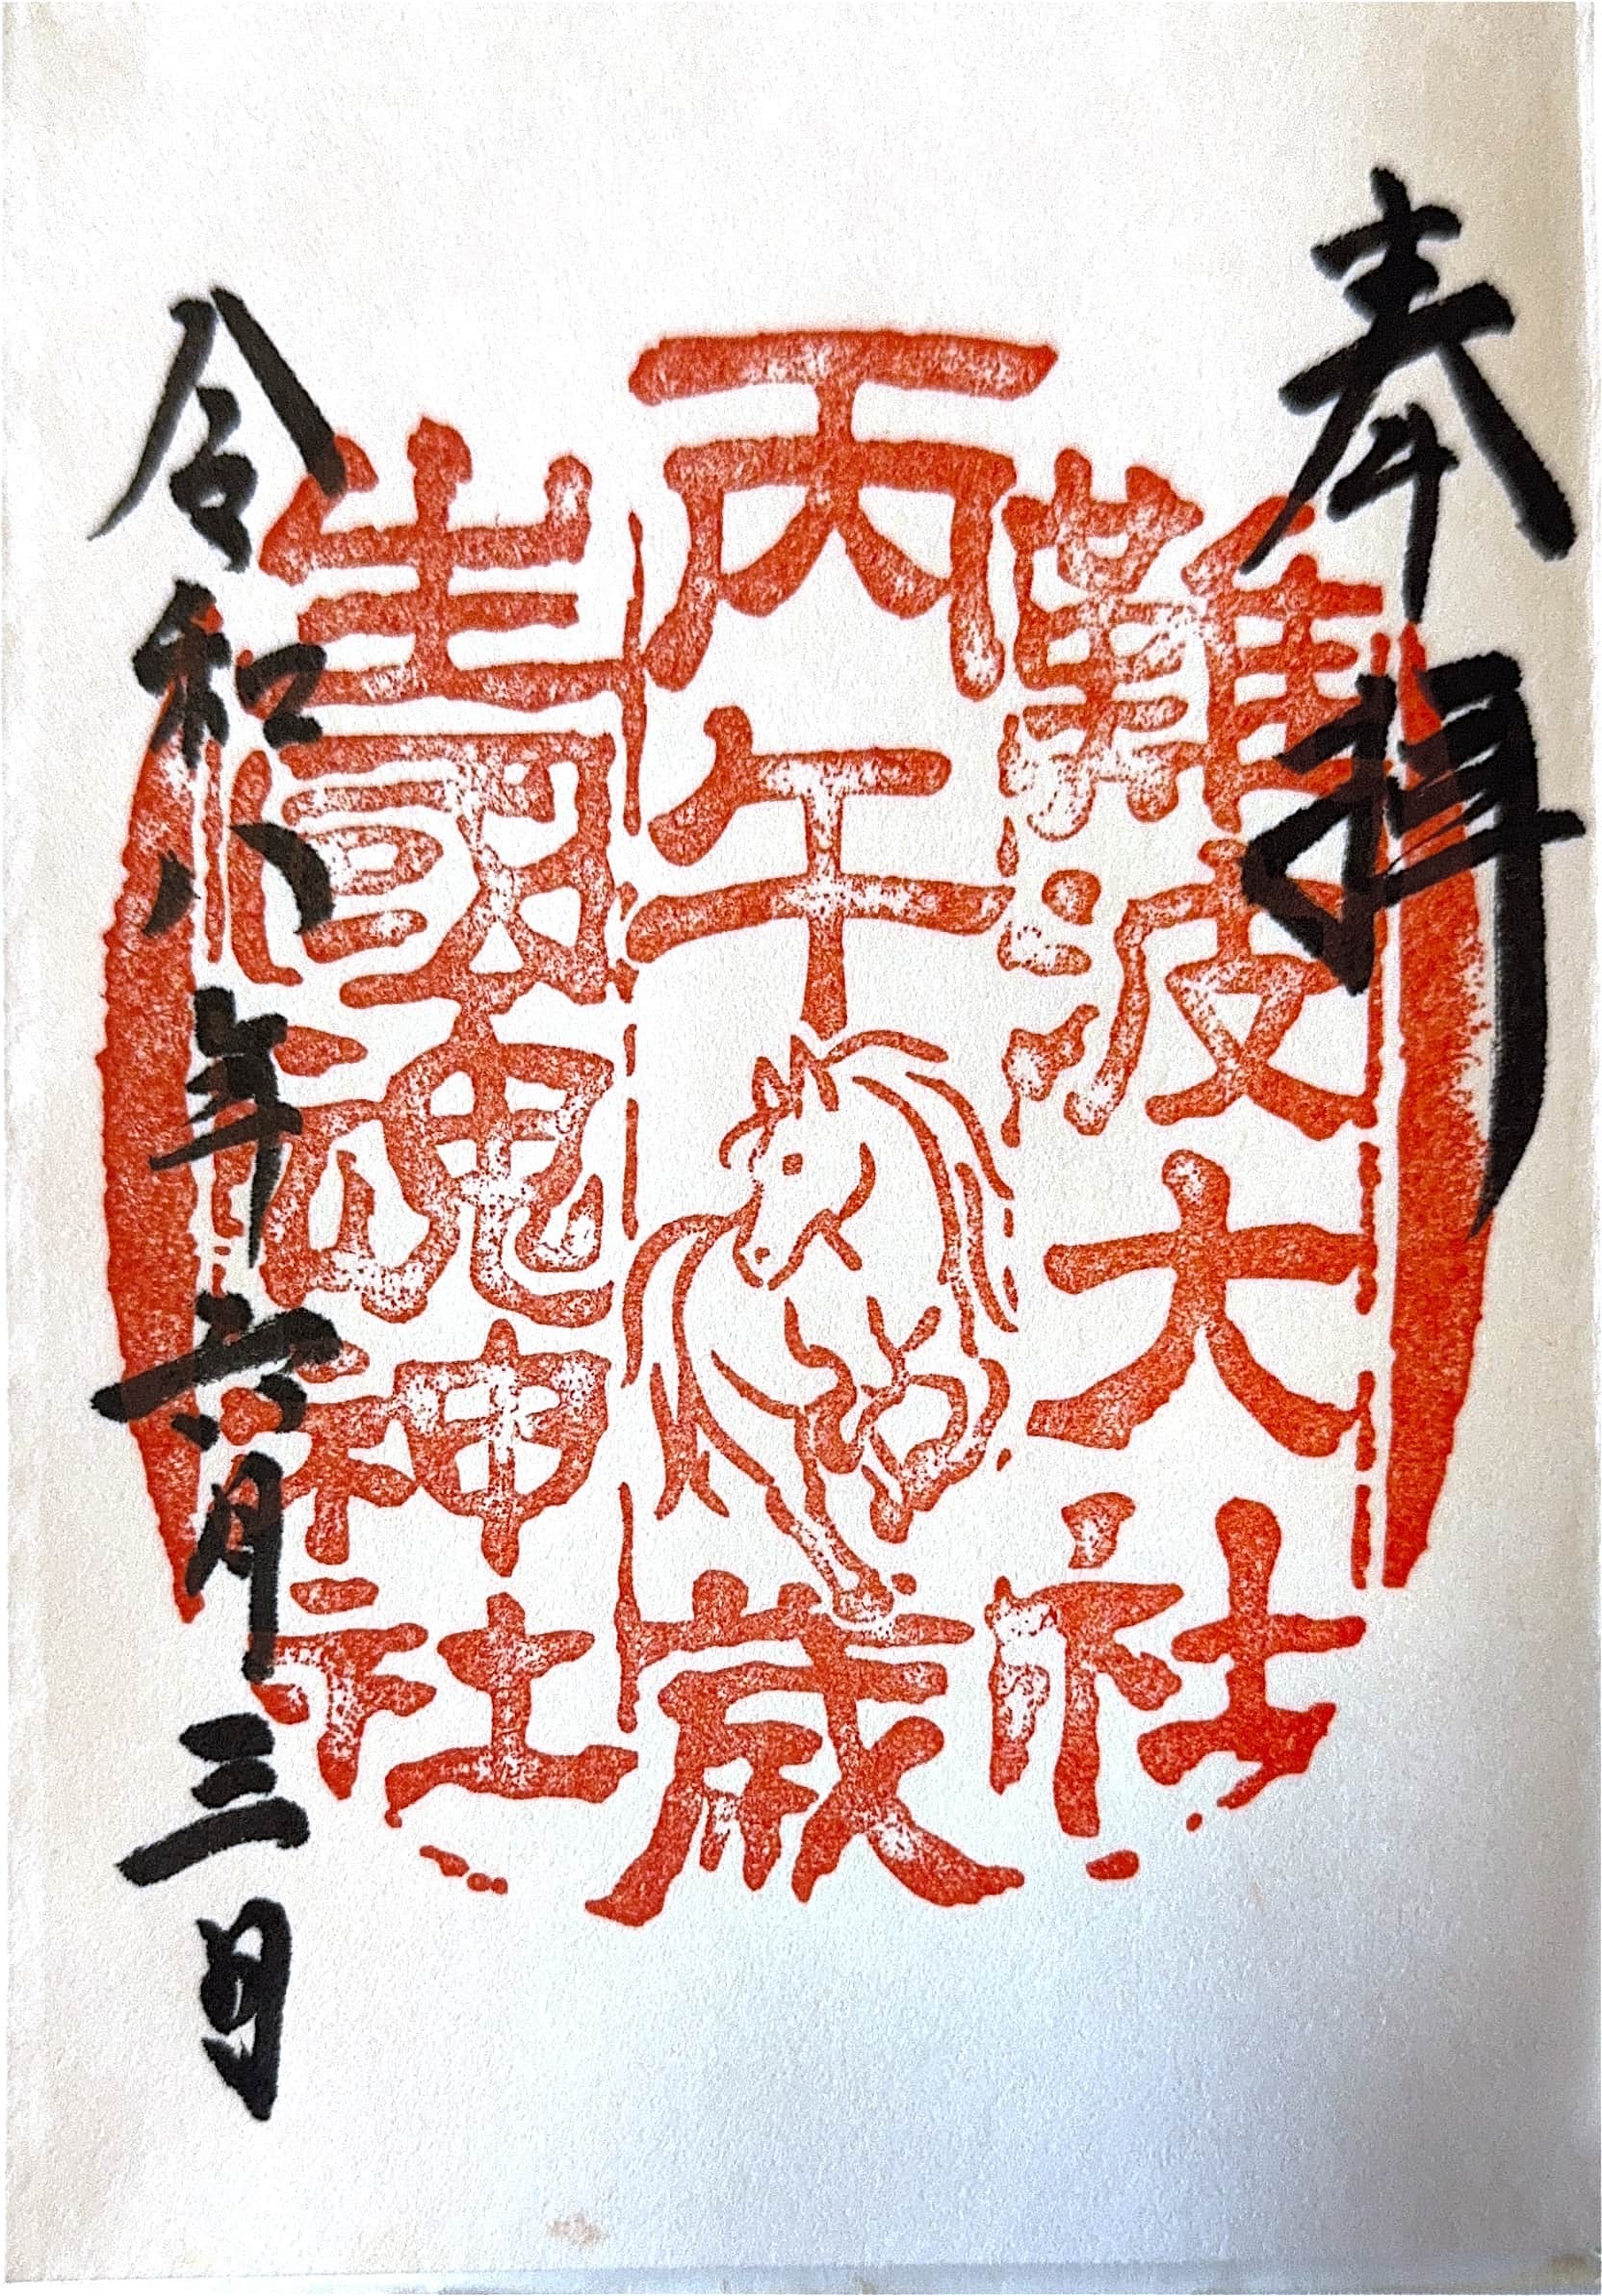 奉拝
難波大社
丙午歳
生國魂神社
令和八年六月三日